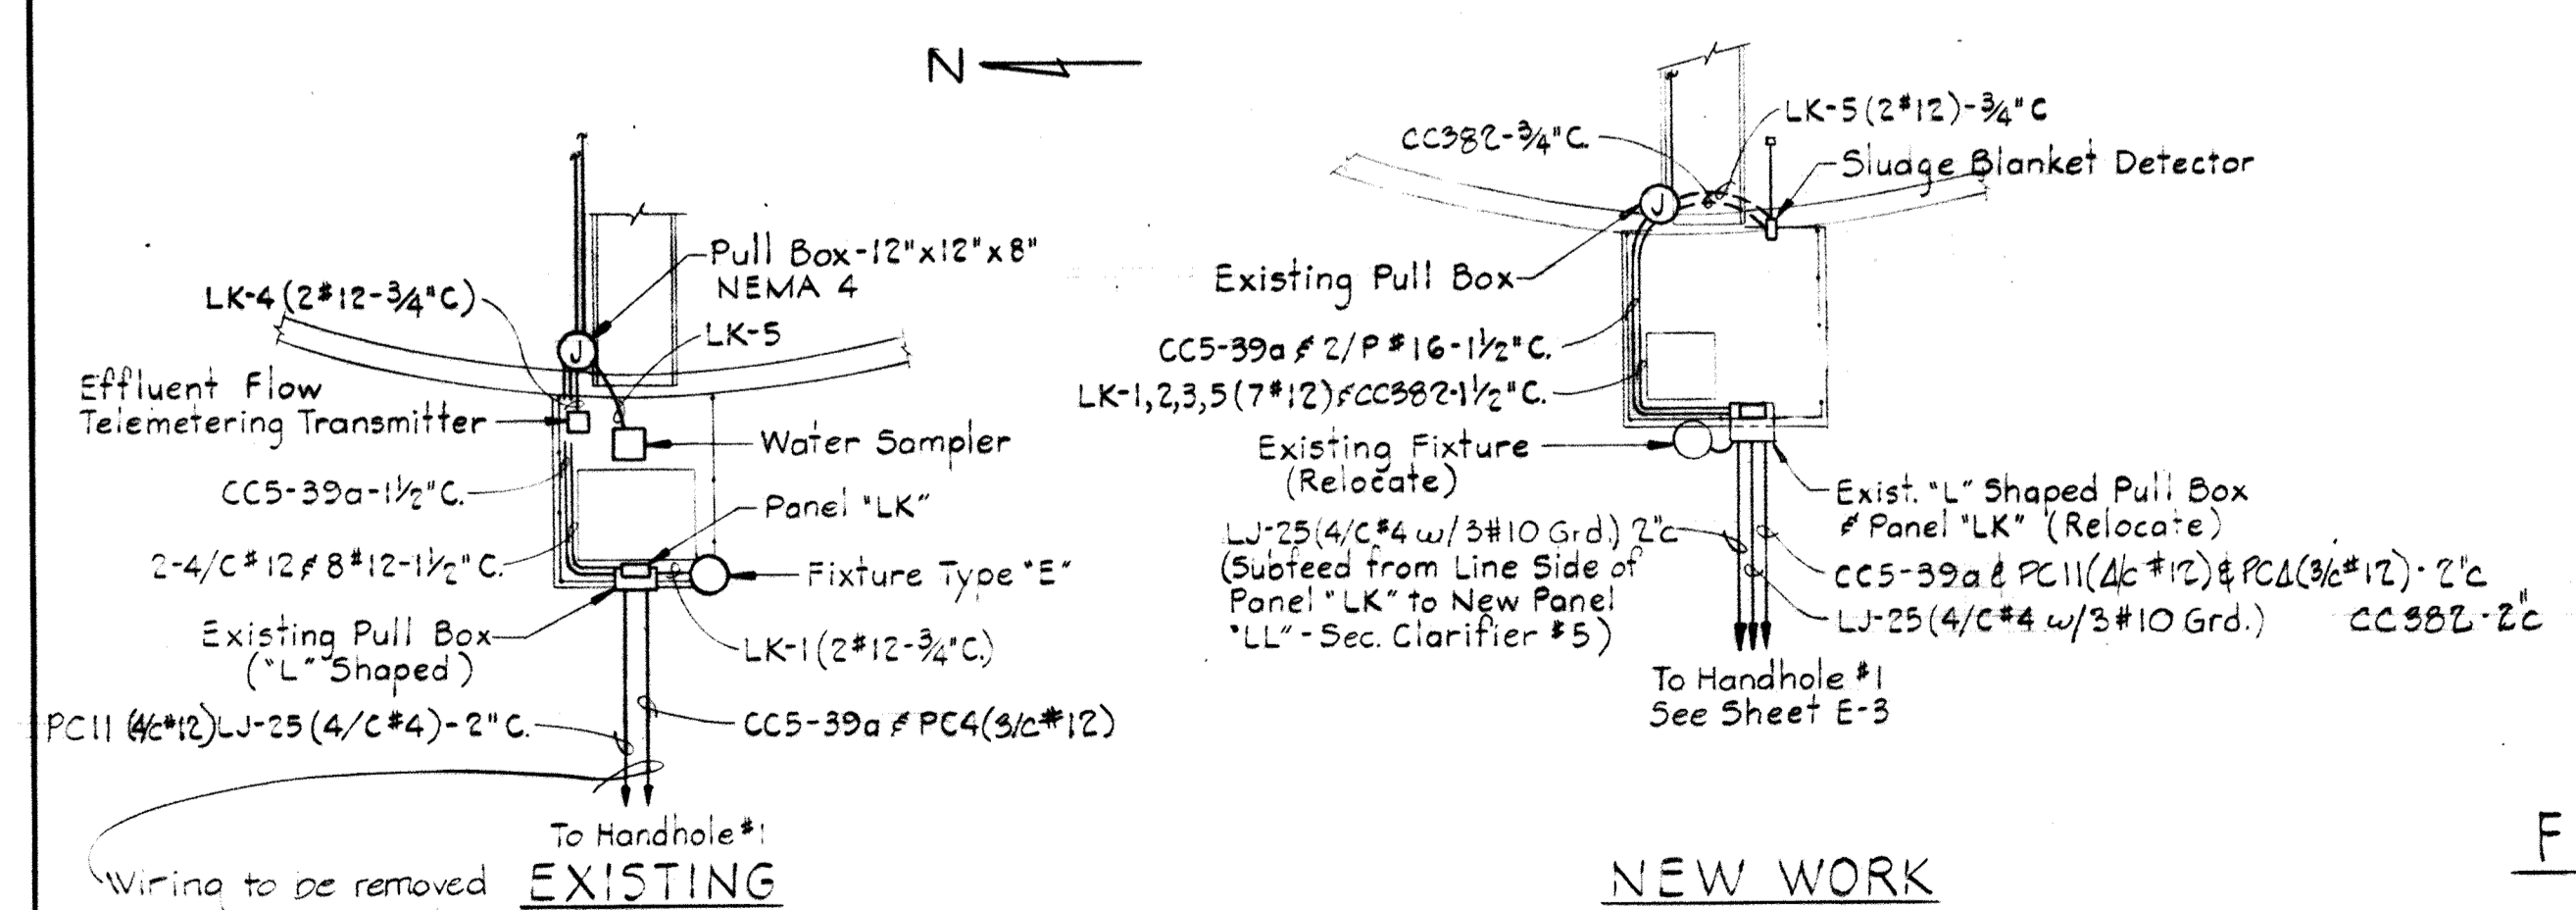 N
Pull Box-12"x12"x8"
NEMA 4
LK-4(2#12-3/4"C)
LK-5
Effluent Flow
Telemetering Transmitter
Water Sampler
CC5-39a-1½"C.
Panel "LK"
2-4/C#12 & 8#12-1½"C.
Fixture Type "E"
Existing Pull Box
("L" Shaped)
LK-1(2#12-3/4"C.)
PC11 (4/c#12)LJ-25(4/C#4)-2"C.
CC5-39a & PC4(3/c#12)
To Handhole #1
Wiring to be removed
EXISTING
J
LK-5(2#12)-3/4"C
CC382-3/4"C.
Sludge Blanket Detector
J
Existing Pull Box
CC5-39a & 2/P #16-1½"C.
LK-1,2,3,5(7#12)&CC382-1½"C.
Existing Fixture
(Relocate)
Exist. "L" Shaped Pull Box
& Panel "LK" (Relocate)
LJ-25(4/C#4 w/3#10 Grd.) 2"c
(Subfeed from Line Side of
Panel "LK" to New Panel
"LL"-Sec. Clarifier #5)
CC5-39a & PC11(4/c #12) & PC4(3/c#12)-2"c
LJ-25(4/C#4 w/3#10 Grd.) CC382-2"c
To Handhole #1
See Sheet E-3
NEW WORK
F